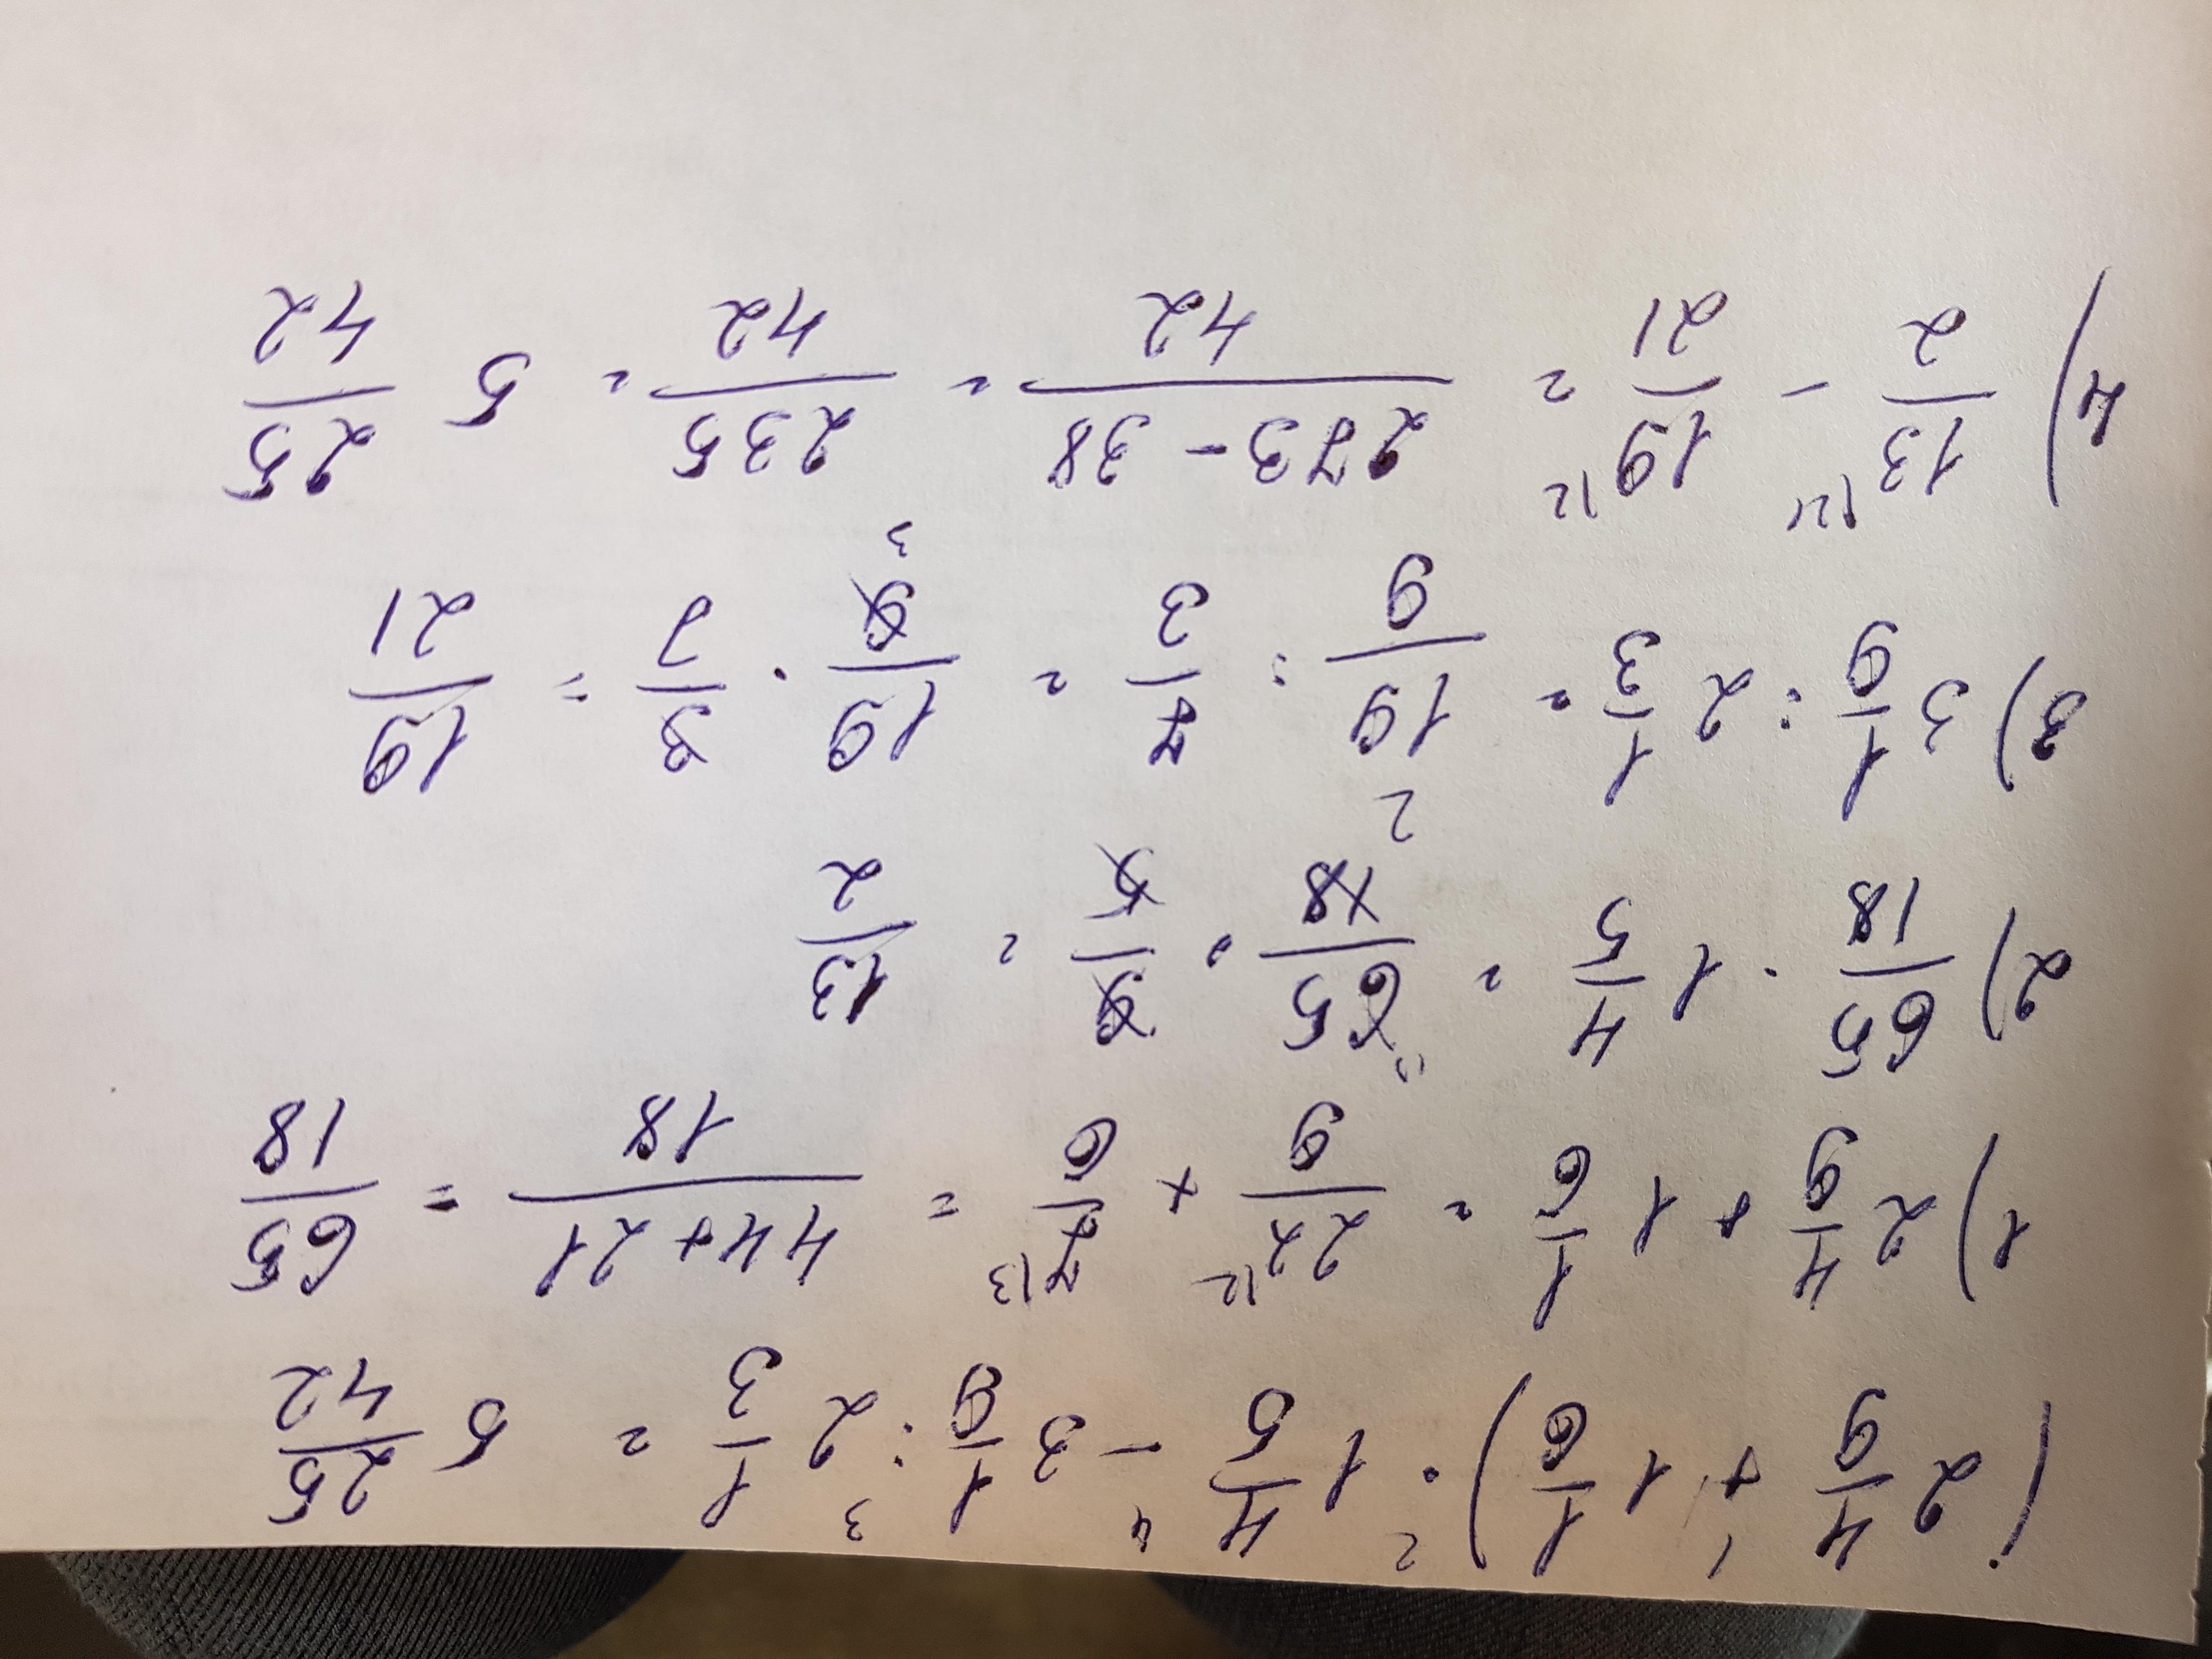 (2 4/9 + 1 1/6) · 1 4/5 - 3 1/9 : 2 1/3 = 5 25/42
1) 2 4/9 + 1 1/6 = 22/9 + 7/6 = 44+21/18 = 65/18
2) 65/18 · 1 4/5 = 65/18 · 9/5 = 13/2
3) 3 1/9 : 2 1/3 = 19/9 : 7/3 = 19/9 · 3/7 = 19/21
4) 13/2 - 19/21 = 273-38/42 = 235/42 = 5 25/42